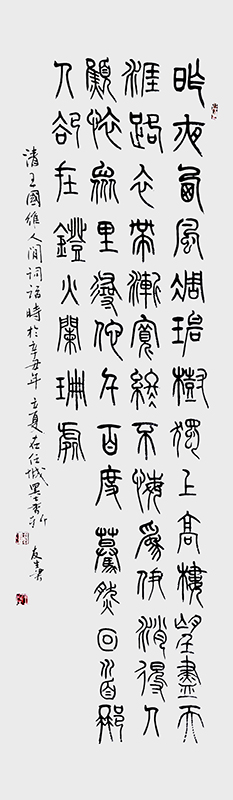 昨夜西風凋碧樹獨上高樓望盡天
涯路衣帶漸寬終不悔為伊消得人
顦悴眾里尋他千百度驀然回首那
人卻在鐙火闌珊處
清王國維人間詞話時於辛丑年立夏在任城墨香軒
書